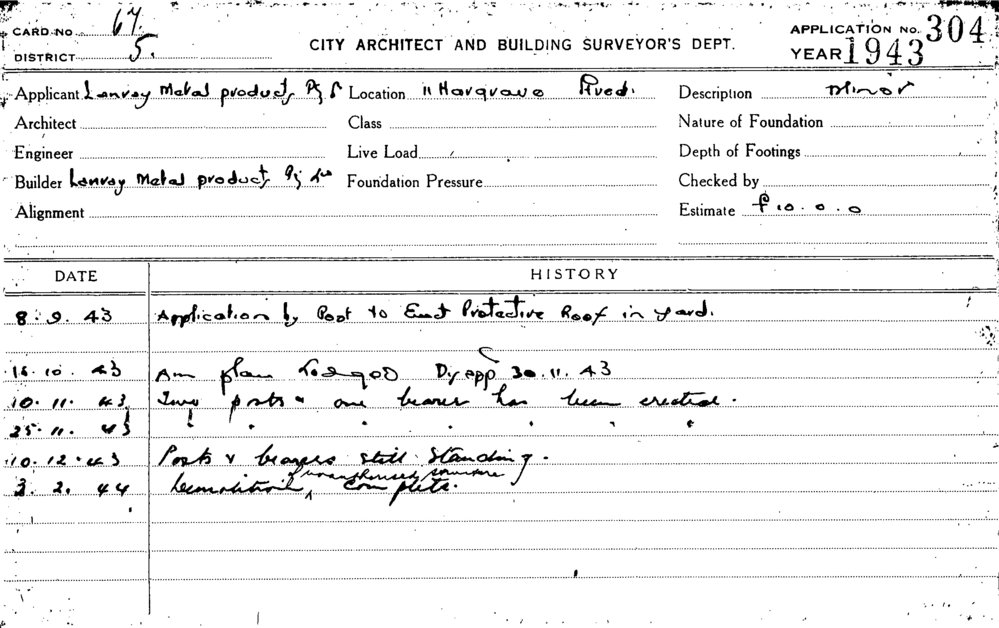 CARD No 67
DISTRICT 5.
CITY ARCHITECT AND BUILDING SURVEYOR'S DEPT.
APPLICATION No. 304
YEAR 1943
Applicant Lenray Metal products Location 11 Hargrave Description Minor
Architect Class Nature of Foundation
Engineer Live Load Depth of Footings
Builder Lenray Metal products Foundation Pressure Checked by
Alignment Estimate £10.0.0
DATE HISTORY
8.9.43 Application by Post to Erect Protective Roof in yard.
15.10.43 Am plan Lodged Disapp 30.11.43
10.11.43 Two posts & one bearer has been erected.
25.11.43 " " " " " " "
10.12.43 Posts & bearers still standing.
3.2.44 Demolition of unauthorised structure complete.